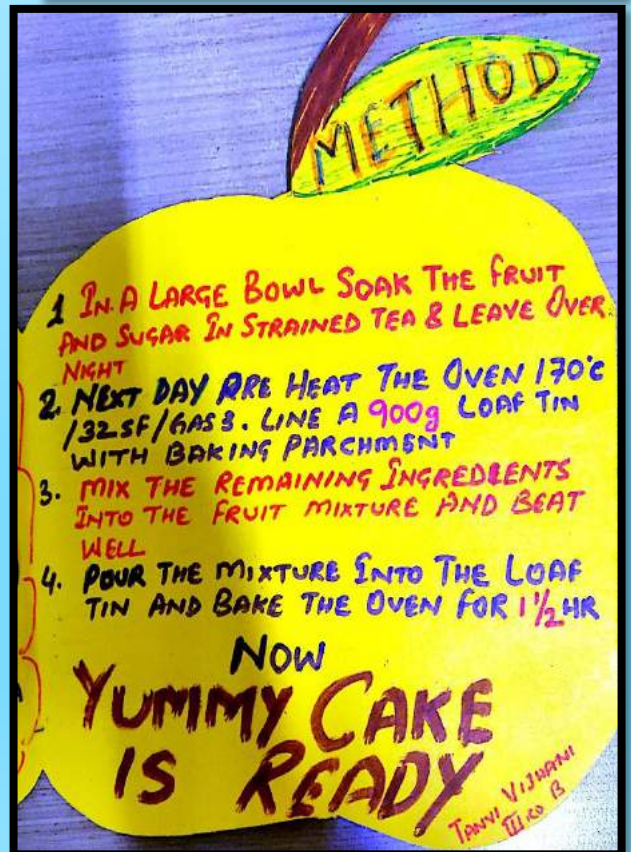 METHOD
1 IN A LARGE BOWL SOAK THE FRUIT
AND SUGAR IN STRAINED TEA & LEAVE OVER
NIGHT
2. NEXT DAY PRE HEAT THE OVEN 170°C
/325F/GAS 3. LINE A 900g LOAF TIN
WITH BAKING PARCHMENT
3. MIX THE REMAINING INGREDIENTS
INTO THE FRUIT MIXTURE AND BEAT
WELL
4. POUR THE MIXTURE INTO THE LOAF
TIN AND BAKE THE OVEN FOR 1½ HR
NOW
YUMMY CAKE
IS READY
TANVI VIJHANI
III RD B